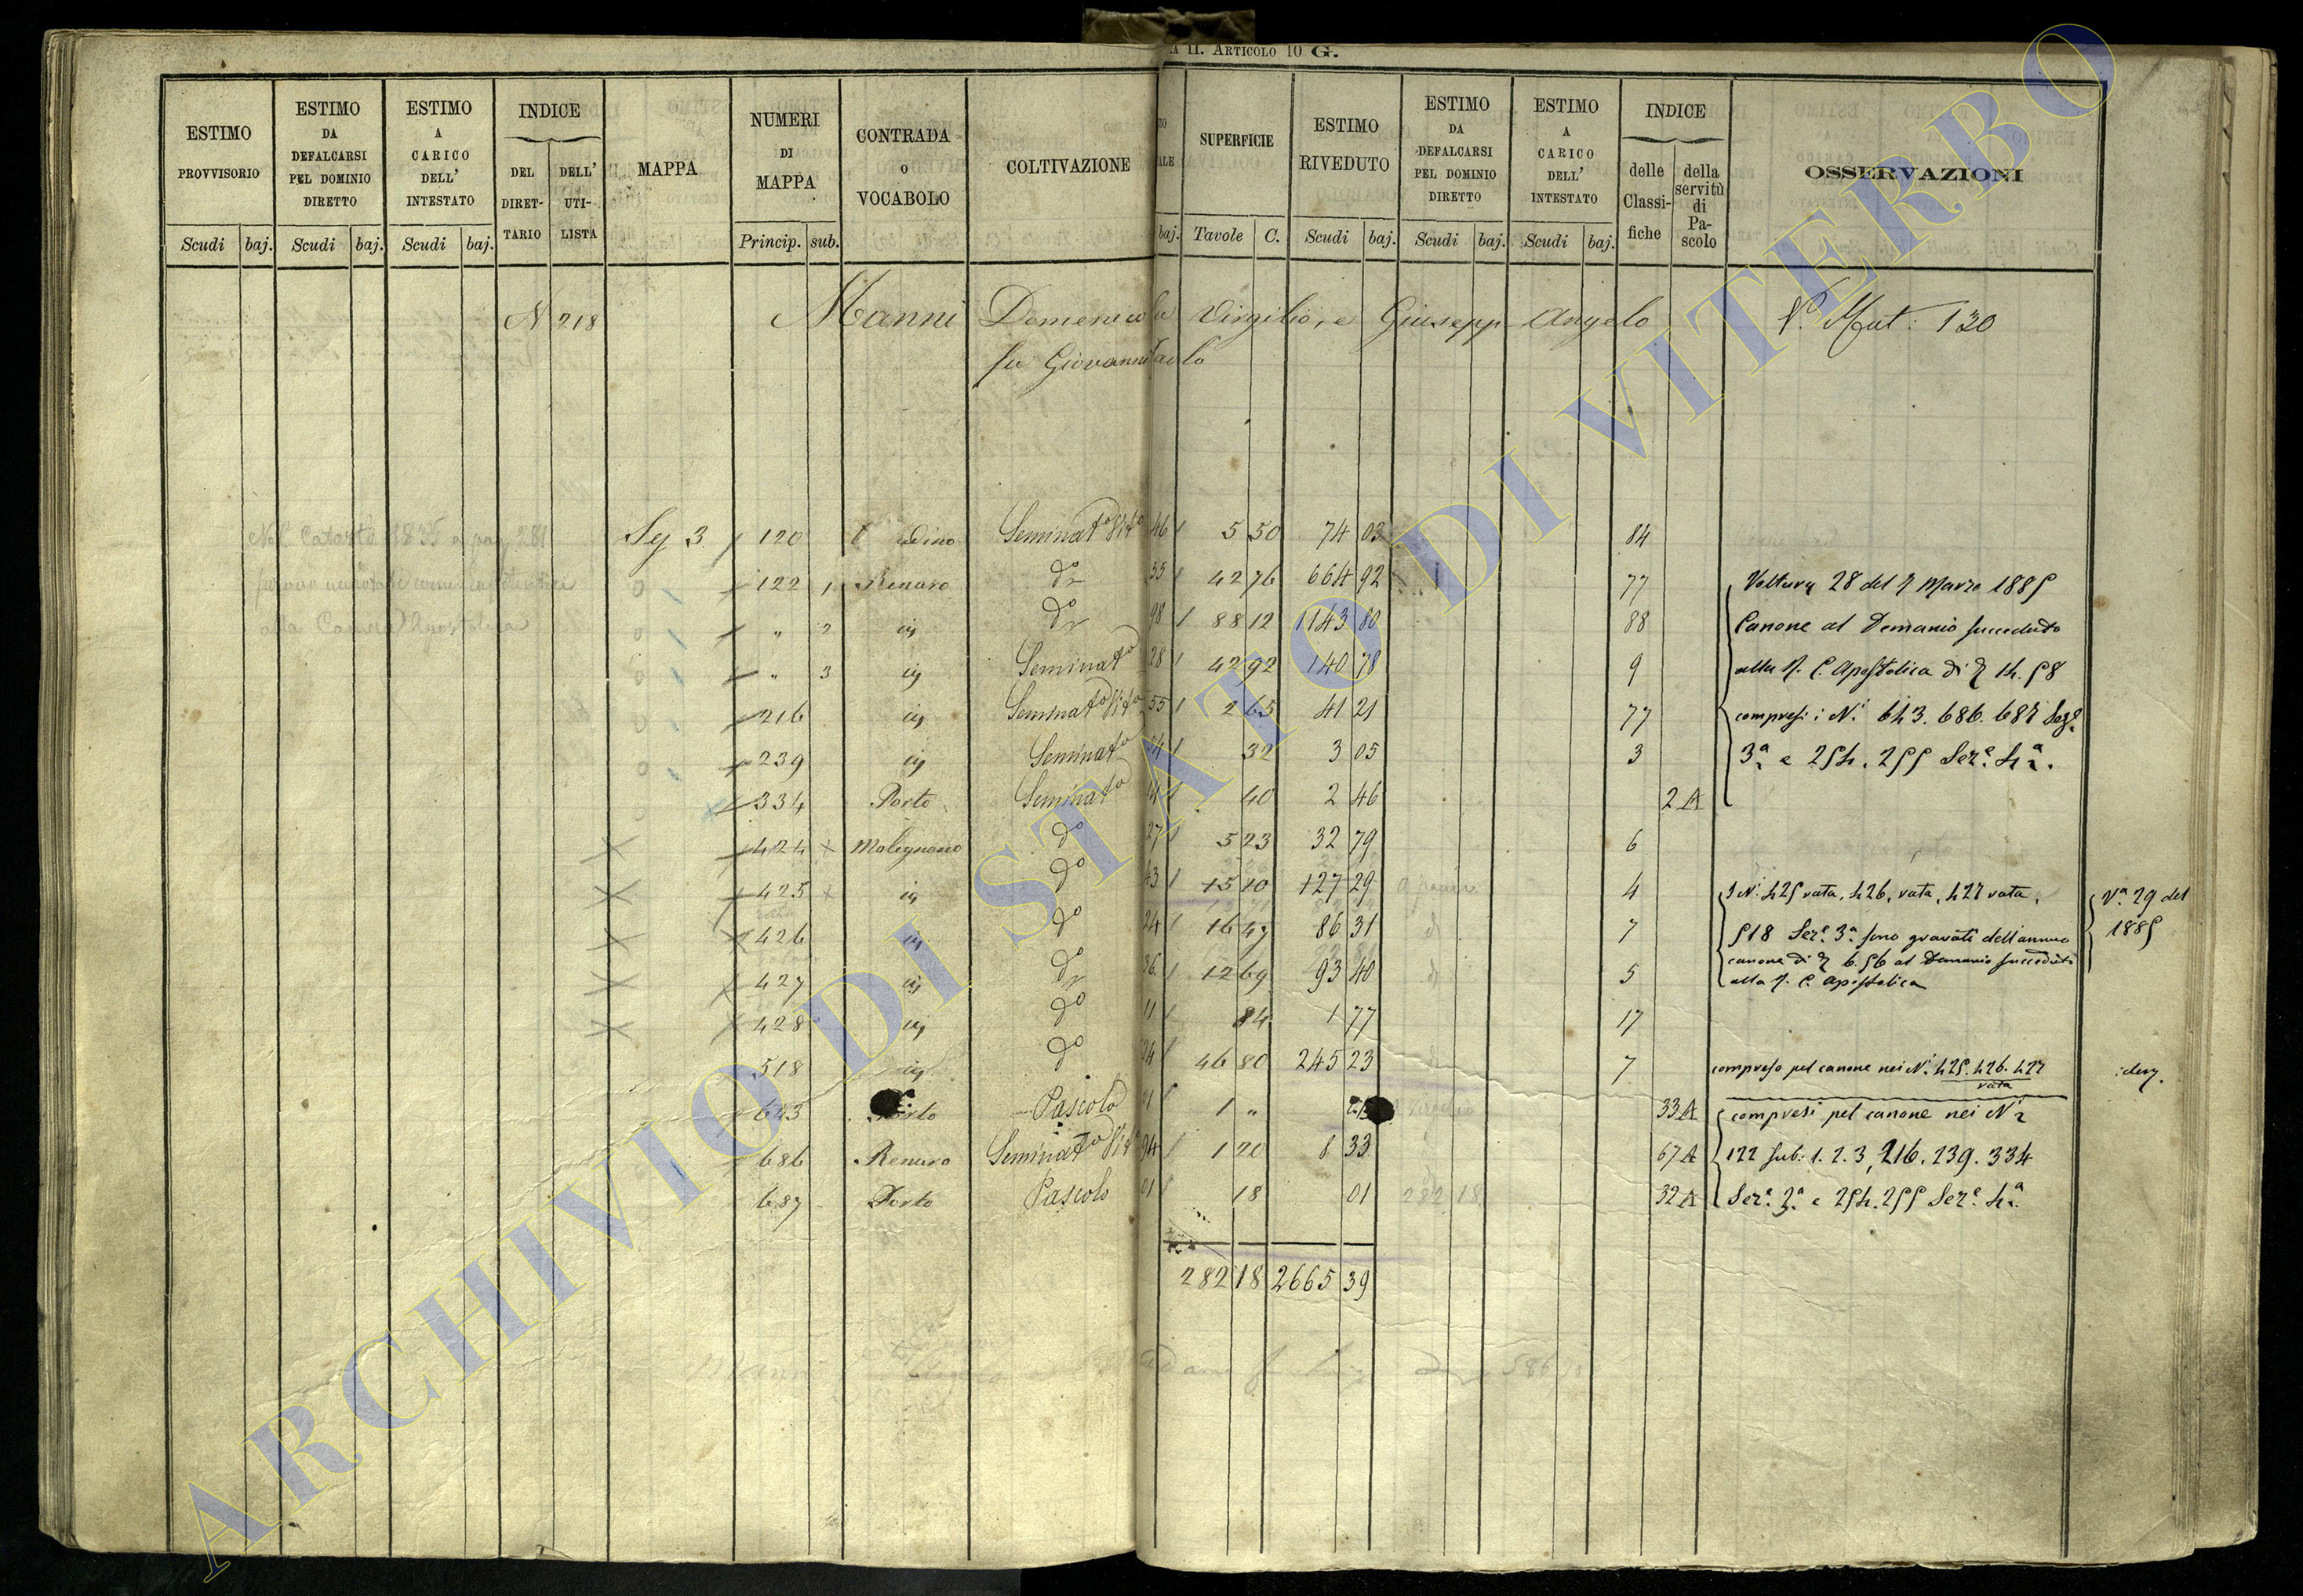 II. ARTICOLO 10 G.
ESTIMO PROVVISORIO
Scudi baj.
ESTIMO DA DEFALCARSI PEL DOMINIO DIRETTO
Scudi baj.
ESTIMO A CARICO DELL' INTESTATO
Scudi baj.
INDICE
DEL DIRET-TARIO
DELL' UTI-LISTA
MAPPA
NUMERI DI MAPPA
Princip. sub.
CONTRADA o VOCABOLO
COLTIVAZIONE
baj.
SUPERFICIE
Tavole C.
ESTIMO RIVEDUTO
Scudi baj.
ESTIMO DA DEFALCARSI PEL DOMINIO DIRETTO
Scudi baj.
ESTIMO A CARICO DELL' INTESTATO
Scudi baj.
INDICE
delle Classi-fiche
della servitù di Pa-scolo
OSSERVAZIONI
N 218 Manni Domenico Virgilio, e Giusepp Angelo N.º Mut: 130
fu Giovanni Paolo
Nel Catasto 1835 a pag 281
Seg 3 120 Seminatº Vitº 46 5 50 74 03 84
122 1 Renaro dº 55 42 76 664 92 77 Voltura 28 del 7 Marzo 1885
" 2 iij dº 98 88 12 1143 80 88 Canone al Demanio succeduto
" 3 iij Seminatº 28 42 92 140 78 9 alla R. C. Apostolica di
216 iij Seminatº Vitº 55 2 65 41 21 77 compresi i N.i 643. 686. 687 Sezº
239 iij Seminatº 32 3 05 3 3ª e 254. 255 Sezº. 4ª.
334 Porto Seminatº 40 2 46 2 A
424 Molignano dº 27 5 23 32 79 6
425 iij dº 43 15 10 127 29 4 I N.i 425 rata, 426, rata, 427 rata, Vª 29 del
426 iij dº 24 16 47 86 31 7 518 Sezº. 3ª. sono gravati dell'annuo 1885
427 iij dº 36 12 69 93 40 5 canone di 6.56 al Demanio succeduto
alla R. C. Apostolica
428 iij dº 11 84 1 77 17
518 iij dº 24 46 80 245 23 7 compreso pel canone nei N.i 425. 426. 427 idem.
rata
643 Porto Pascolo 01 1 " 33 A compresi pel canone nei N.i
686 Renaro Seminatº Vitº 94 1 20 8 33 67 A 122 sub: 1. 2. 3, 216. 239. 334
687 Porto Pascolo 01 18 01 282 18 32 A Sezº. 3ª e 254. 255 Sezº. 4ª
282 18 2665 39
ARCHIVIO DI STATO DI VITERBO